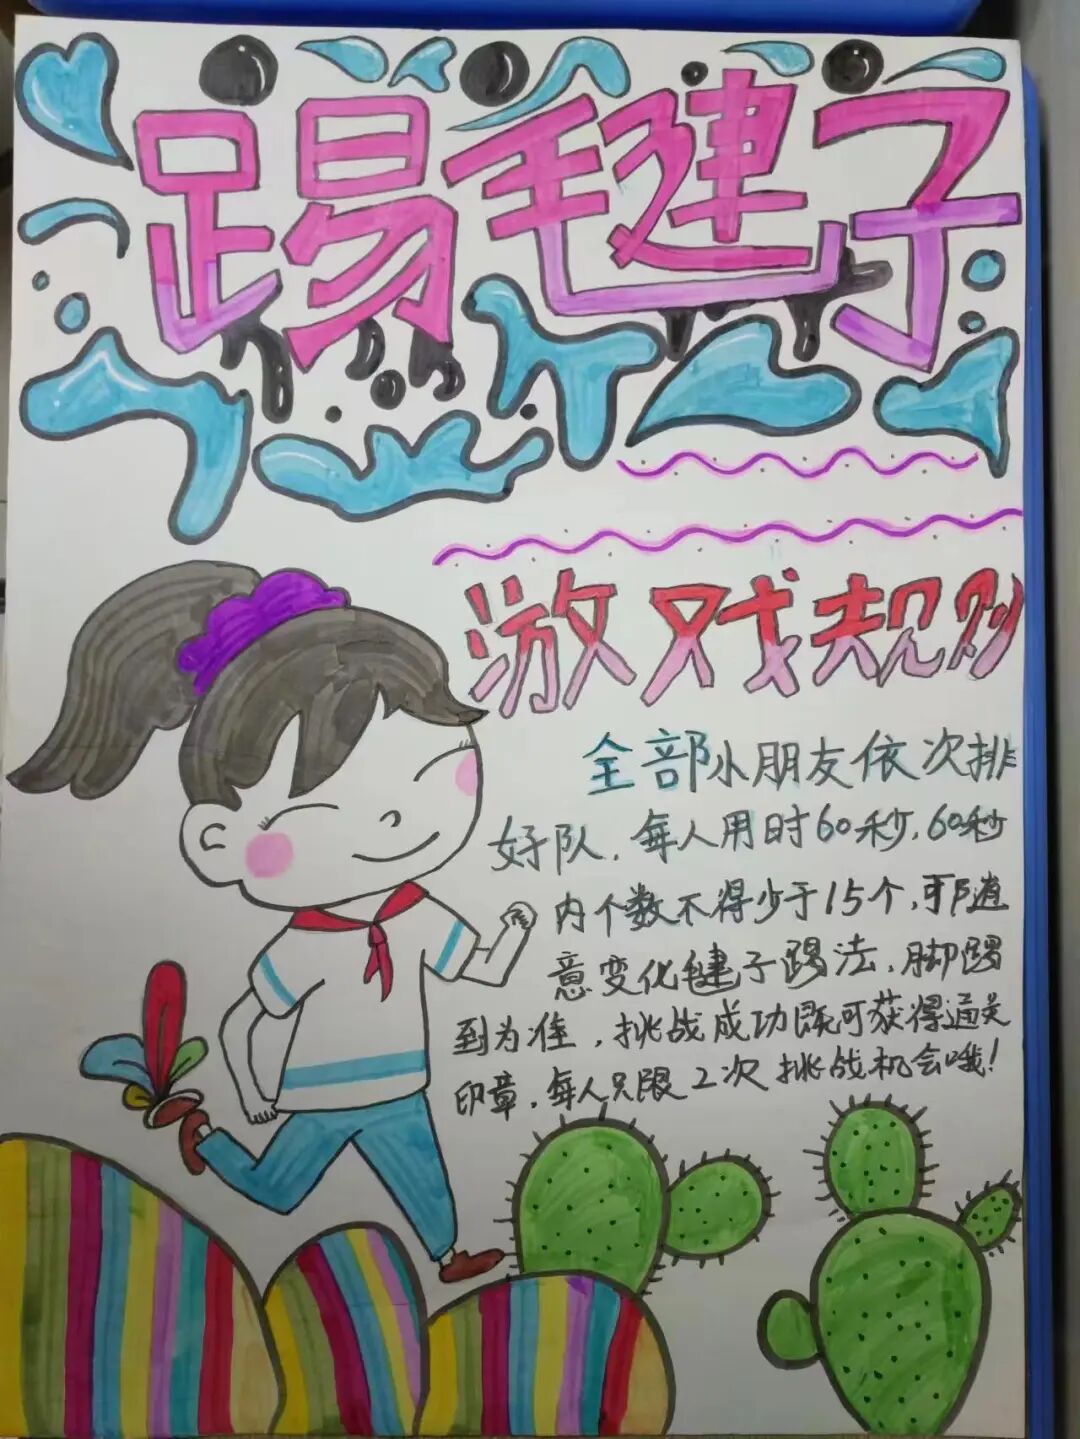 踢毽子
游戏规则
全部小朋友依次排
好队，每人用时60秒，60秒
内个数不得少于15个，可随
意变化毽子踢法，脚踢
到为准，挑战成功既可获得通关
印章，每人只限2次挑战机会哦！